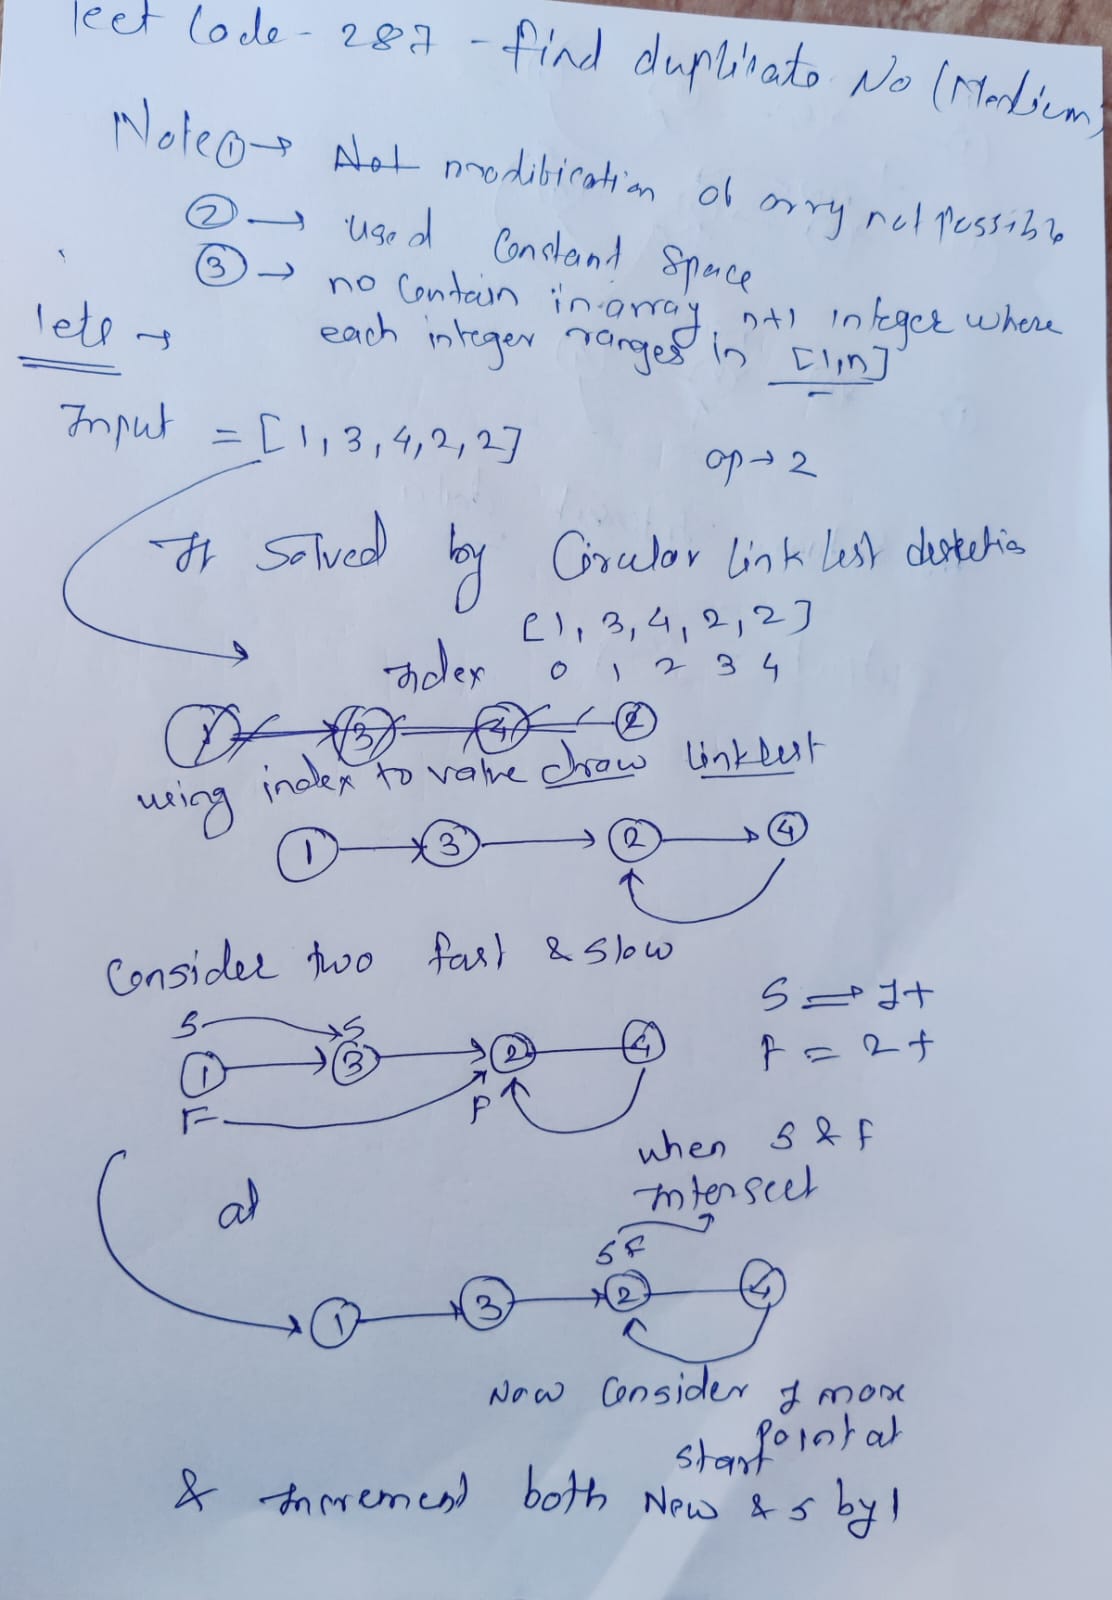 leet Code - 287 - find duplicate No (Medium)
Note ① → Not modification of arry not possible
② → used Constant Space
③ → no Contain in array n+1 integer where
each integer ranges in [1,n]
lets →
Input = [1,3,4,2,2]
op → 2
It Solved by Circular link list
[1, 3, 4, 2, 2]
Index 0 1 2 3 4
1 3 4 2
using index to value draw linklist
1 3 2 4
Consider two fast & slow
S S
1 3 2 4
F F
S ⇒ 1+
F = 2+
when S & F
Intersect
at
S F
1 3 2 4
Now Consider 1 more
point at
start
& Increment both New & S by 1